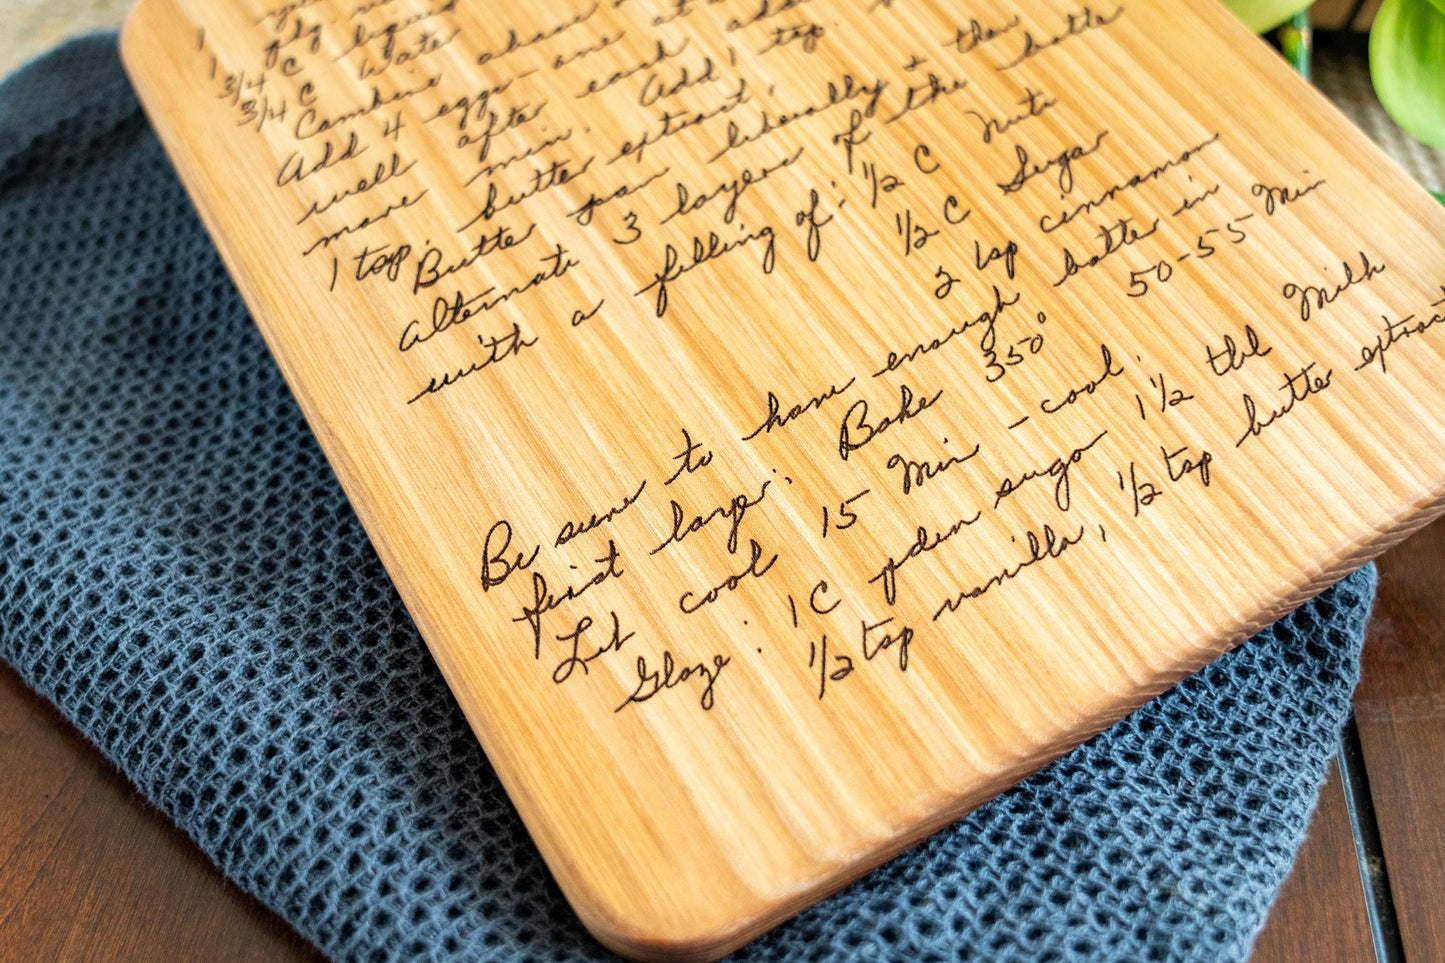 1
1 pkg
3/4 C liquid
3/4 C Wate
Combine above
Add 4 eggs - one at a
well after each add
more min. Add 1 tsp.
1 tsp. butter extract.
Butter pan liberally + then
alternate 3 layers of the batter
with a filling of: 1/2 C Nuts
1/2 C Sugar
2 tsp cinnamon
Be sure to have enough batter in
first layer. Bake 350° 50-55 Min
Let cool 15 Min - cool.
Glaze: 1 C pden sugar 1 1/2 tbl Milk
1/2 tsp vanilla, 1/2 tsp butter extract